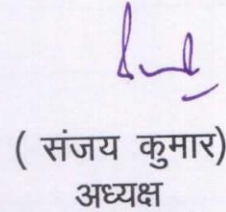 ( संजय कुमार)
अध्यक्ष